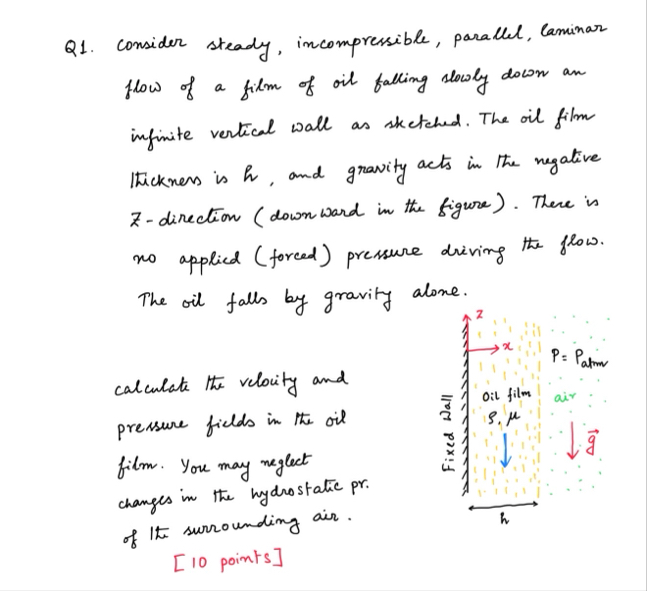 Q1. Consider steady, incompressible, parallel, laminar
flow of a film of oil falling slowly down an
infinite vertical wall as sketched. The oil film
thickness is h, and gravity acts in the negative
Z-direction (downward in the figure). There is
no applied (forced) pressure driving the flow.
The oil falls by gravity alone.
calculate the velocity and
pressure fields in the oil
film. You may neglect
changes in the hydrostatic pr.
of the surrounding air.
[10 points]
z
x
P = Patm
Oil film
air
ρ, μ
g⃗
Fixed Wall
h